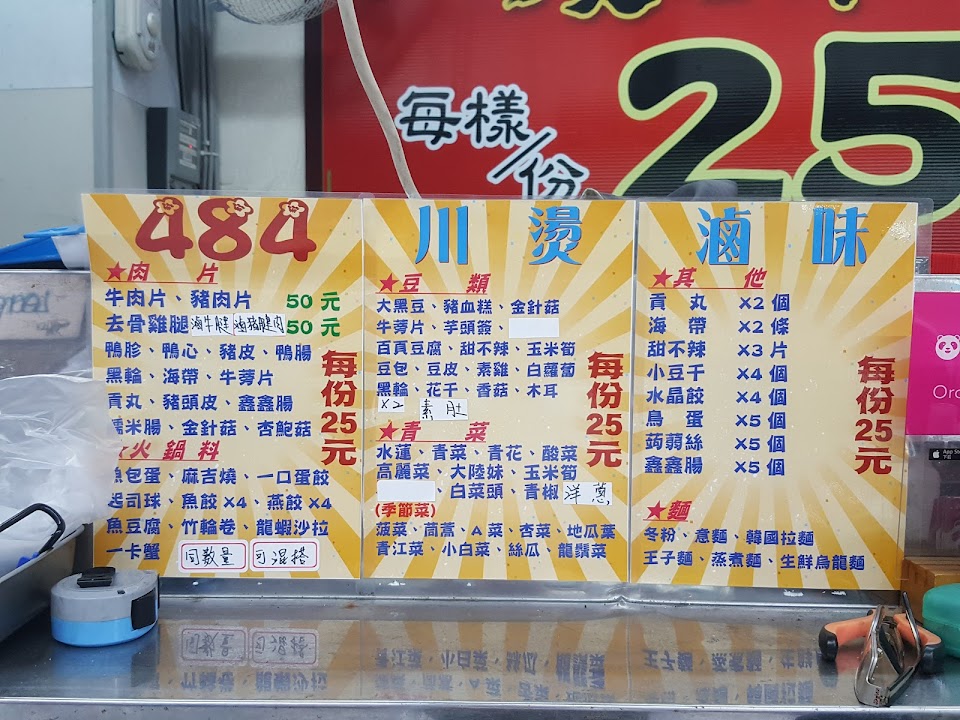 每樣/份 25
484
★肉 片
牛肉片、豬肉片 50元
去骨雞腿 滷牛腱 滷豬腱肉 50元
鴨胗、鴨心、豬皮、鴨腸
黑輪、海帶、牛蒡片
貢丸、豬頭皮、鑫鑫腸
糯米腸、金針菇、杏鮑菇
每份25元
★火鍋料
魚包蛋、麻吉燒、一口蛋餃
起司球、魚餃×4、燕餃×4
魚豆腐、竹輪卷、龍蝦沙拉
一卡蟹 同數量 可混搭
川 燙
★豆 類
大黑豆、豬血糕、金針菇
牛蒡片、芋頭簽、
百頁豆腐、甜不辣、玉米筍
豆包、豆皮、素雞、白蘿蔔
黑輪、花干、香菇、木耳
×2 素肚
每份25元
★青 菜
水蓮、青菜、青花、酸菜
高麗菜、大陸妹、玉米筍
、白菜頭、青椒 洋蔥
(季節菜)
菠菜、茼蒿、A菜、杏菜、地瓜葉
青江菜、小白菜、絲瓜、龍鬚菜
滷 味
★其 他
貢 丸 ×2個
海 帶 ×2條
甜不辣 ×3片
小豆干 ×4個
水晶餃 ×4個
鳥 蛋 ×5個
蒟蒻絲 ×5個
鑫鑫腸 ×5個
每份25元
★麵
冬粉、意麵、韓國拉麵
王子麵、蒸煮麵、生鮮烏龍麵